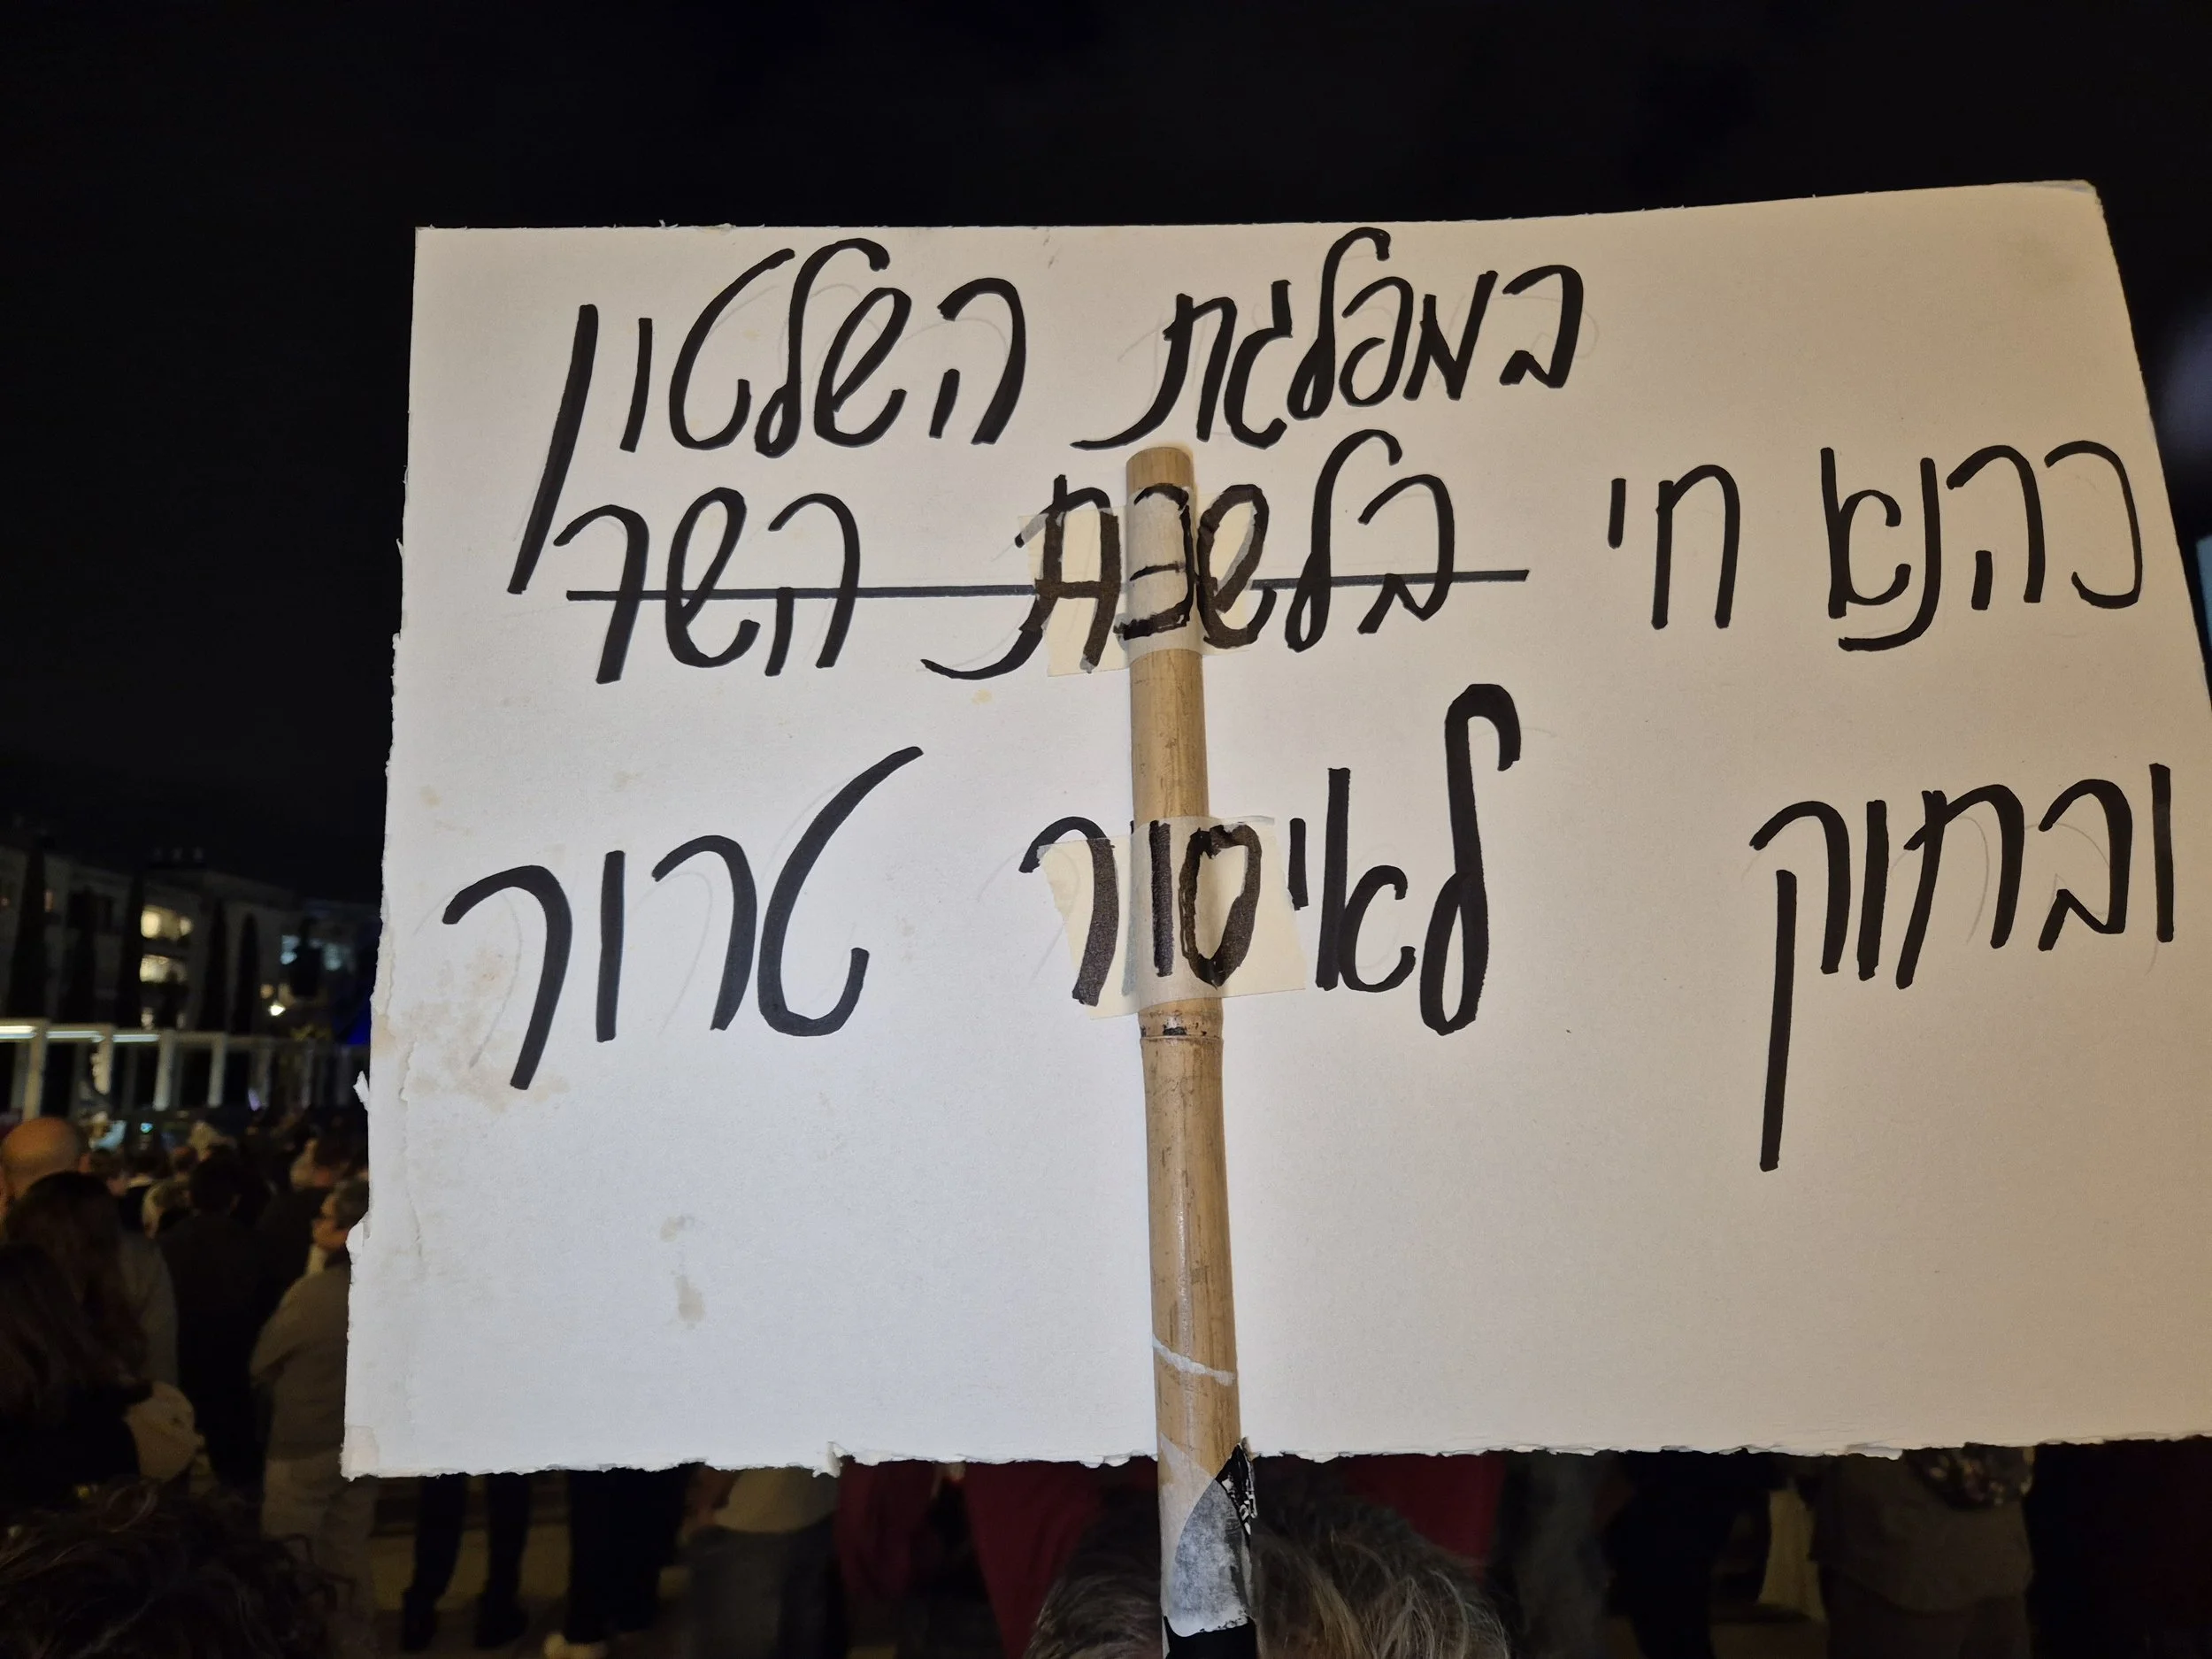 במפלגת השלטון
כהנא חי בלשכת השר
ובחוק לאיסור טרור